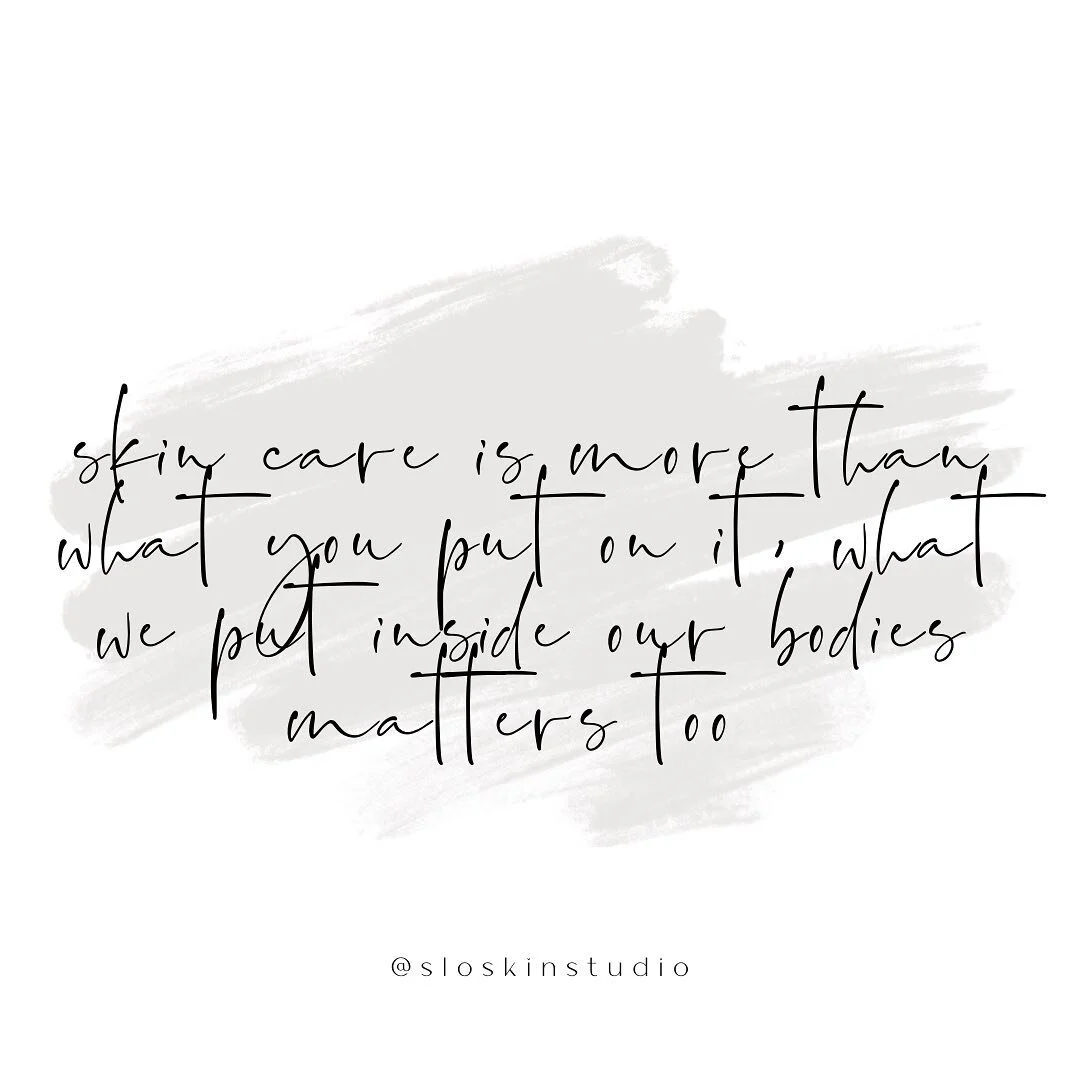 skin care is more than
what you put on it, what
we put inside our bodies
matters too
@sloskinstudio